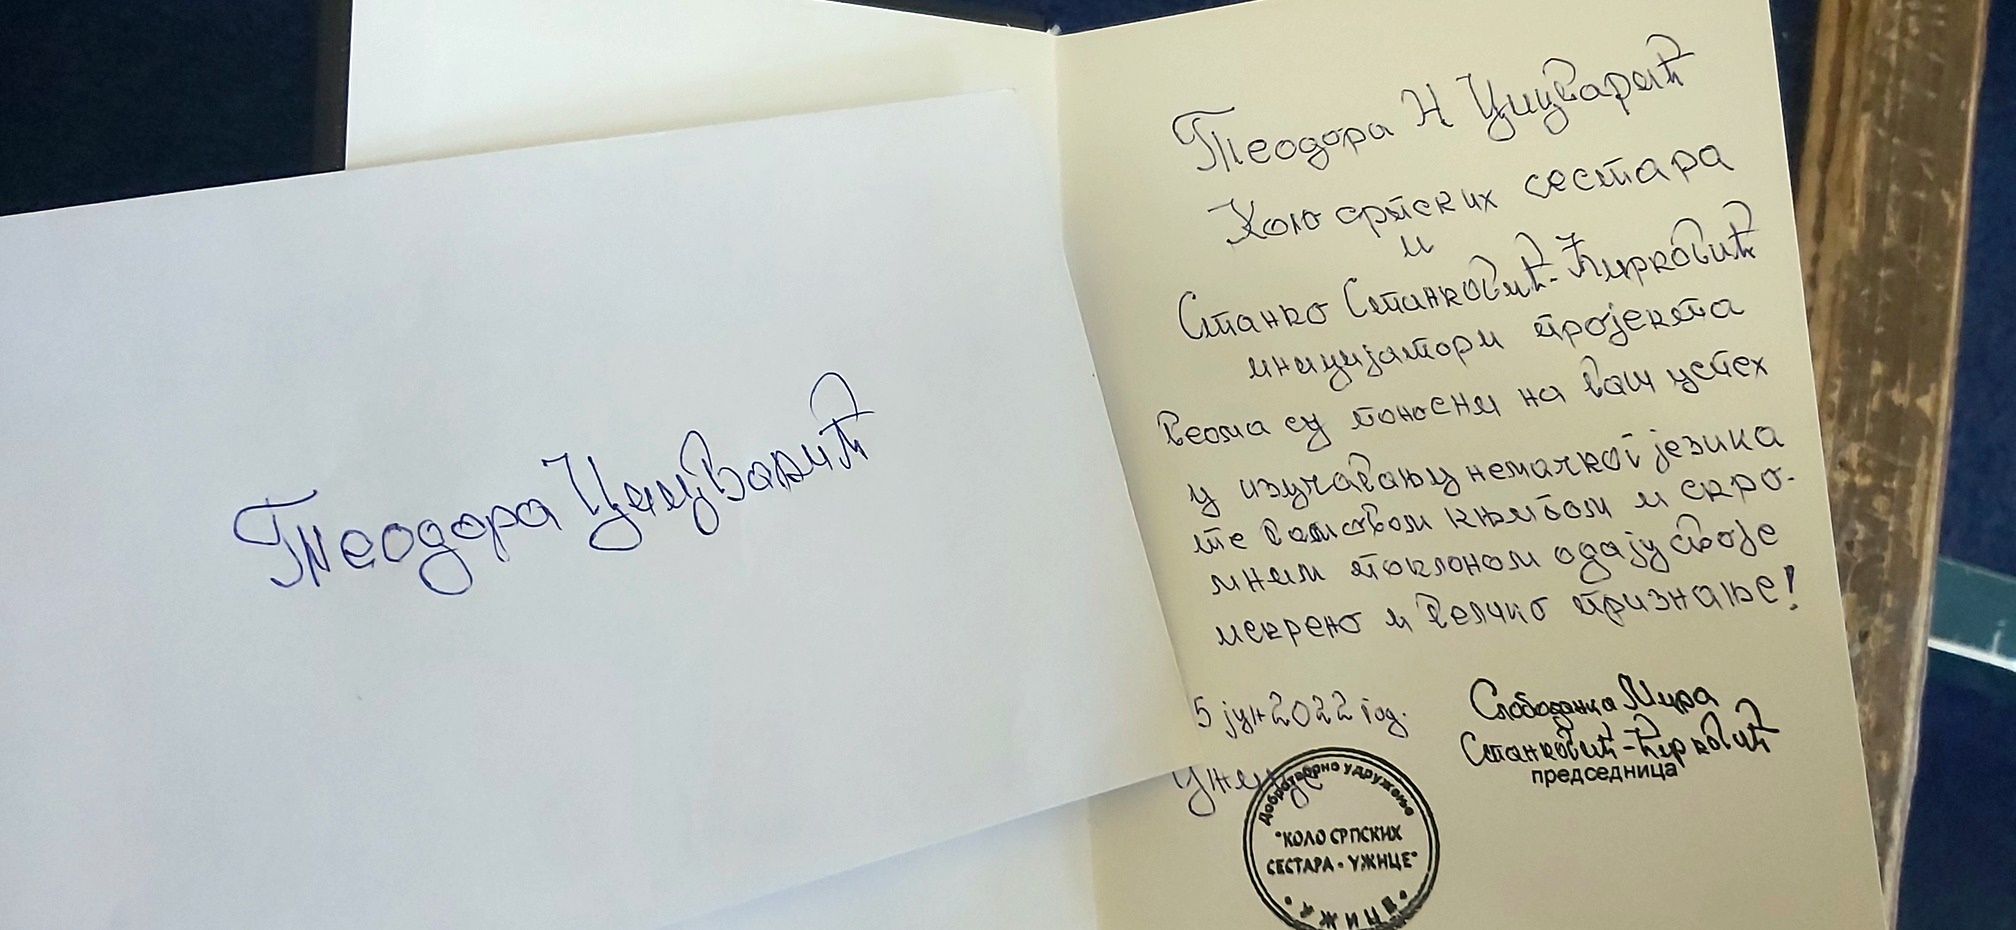 Теодора Цицварић
Теодора Н Цицварић
Коло српских сестара
и
Станко Станковић-Ћирковић
иницијатори пројекта
веома су поносни на ваш успех
у изучавању немачког језика
те овом књигом и скро-
мним поклоном одају своје
искрено и велико признање!
5 јун 2022 год.
Ужице
Слободанка Мира
Станковић-Ћирковић
председница
Добротворно удружење
"КОЛО СРПСКИХ
СЕСТАРА - УЖИЦЕ"
УЖИЦЕ